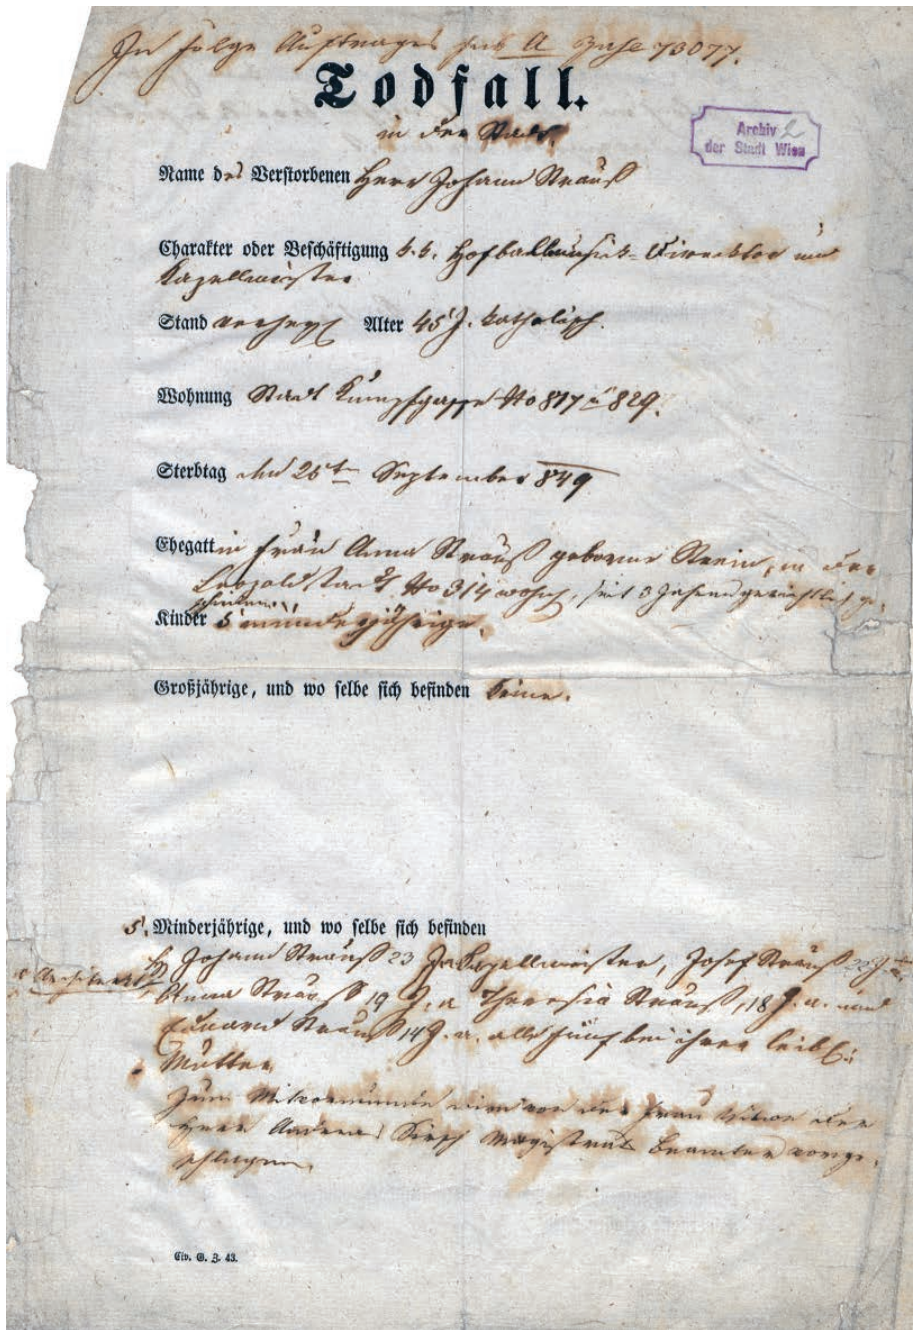 In Folge Auftrages sub A Zahl 73077.
Todfall.
in der Stadt.
Archiv 2
der Stadt Wien
Name des Verstorbenen Herr Johann Strauß
Charakter oder Beschäftigung k.k. Hofballmusik-Direcktor und
Kapellmeister
Stand verheh Alter 45 J. katholisch.
Wohnung Stadt Kumpfgasse No 817 u 829.
Sterbtag den 25t September 849
Ehegattin Frau Anna Strauß geborne Streim, in der
Leopoldstadt No 314 wohnh, seit 3 Jahren gerichtlich ge¬
schieden
Kinder 5 minderjährige.
Großjährige, und wo selbe sich befinden keine.
5, Minderjährige, und wo selbe sich befinden
Johann Strauß 23 J. a. Kapellmeister, Josef Strauß 22 J. a.
Anna Strauß 19 J. a. Theresia Strauß, 18 J. a. und
Eduard Strauß 14 J. a. alle fünf bei ihrer leibl:
Mutter
Zum Mitvormunde wird von der Frau Witwe
Herr Andreas Magistrats Beamter vorge¬
schlagen.
Civ. G. Z. 43.